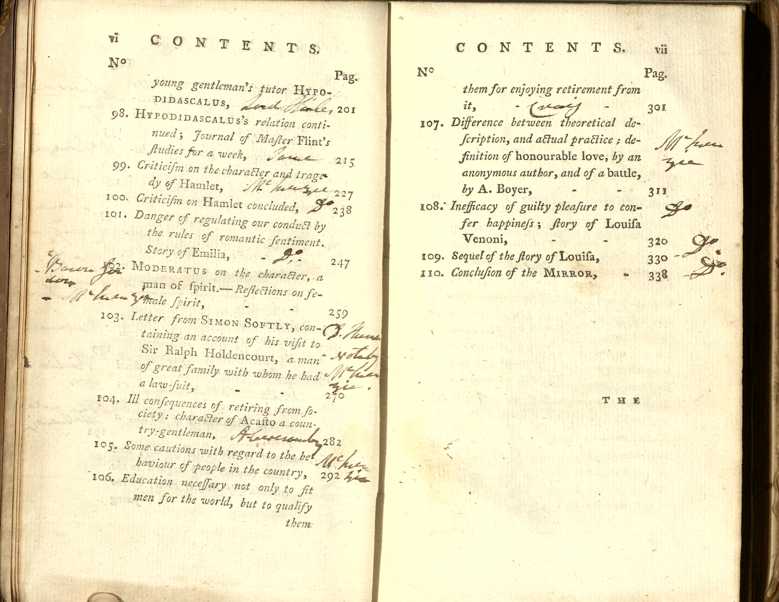 vi CONTENTS.
No Pag.
young gentleman's tutor HYPO-
DIDASCALUS, 201
98. HYPODIDASCALUS's relation conti-
nued; Journal of Maſter Flint's
ſtudies for a week, Same 215
99. Criticiſm on the character and trage-
dy of Hamlet, McKenzie 227
100. Criticiſm on Hamlet concluded, Do 238
101. Danger of regulating our conduct by
the rules of romantic ſentiment.
Story of Emilia, - Do. 247
102. MODERATUS on the character, a
man of ſpirit.—Reflections on fe-
male ſpirit, - 259
McKenzie
103. Letter from SIMON SOFTLY, con-
taining an account of his viſit to
Sir Ralph Holdencourt, a man
of great family with whom he had
a law-ſuit, - - 270
D. Hume
not by
McKen
zie.
104. Ill conſequences of retiring from ſo-
ciety: character of Acaſto a coun-
try-gentleman, Abercromby 282
105. Some cautions with regard to the be-
haviour of people in the country, 292
McKen
zie
106. Education neceſſary not only to fit
men for the world, but to qualify
them
CONTENTS. vii
No Pag.
them for enjoying retirement from
it, - (Craig) - 301
107. Difference between theoretical de-
ſcription, and actual practice; de-
finition of honourable love, by an
anonymous author, and of a battle,
by A. Boyer, - - 311
McKen
zie
108. Inefficacy of guilty pleaſure to con-
fer happineſs; ſtory of Louiſa
Venoni, - - 320
Do
109. Sequel of the ſtory of Louiſa, 330 Do.
110. Concluſion of the MIRROR, - 338 Do.
THE